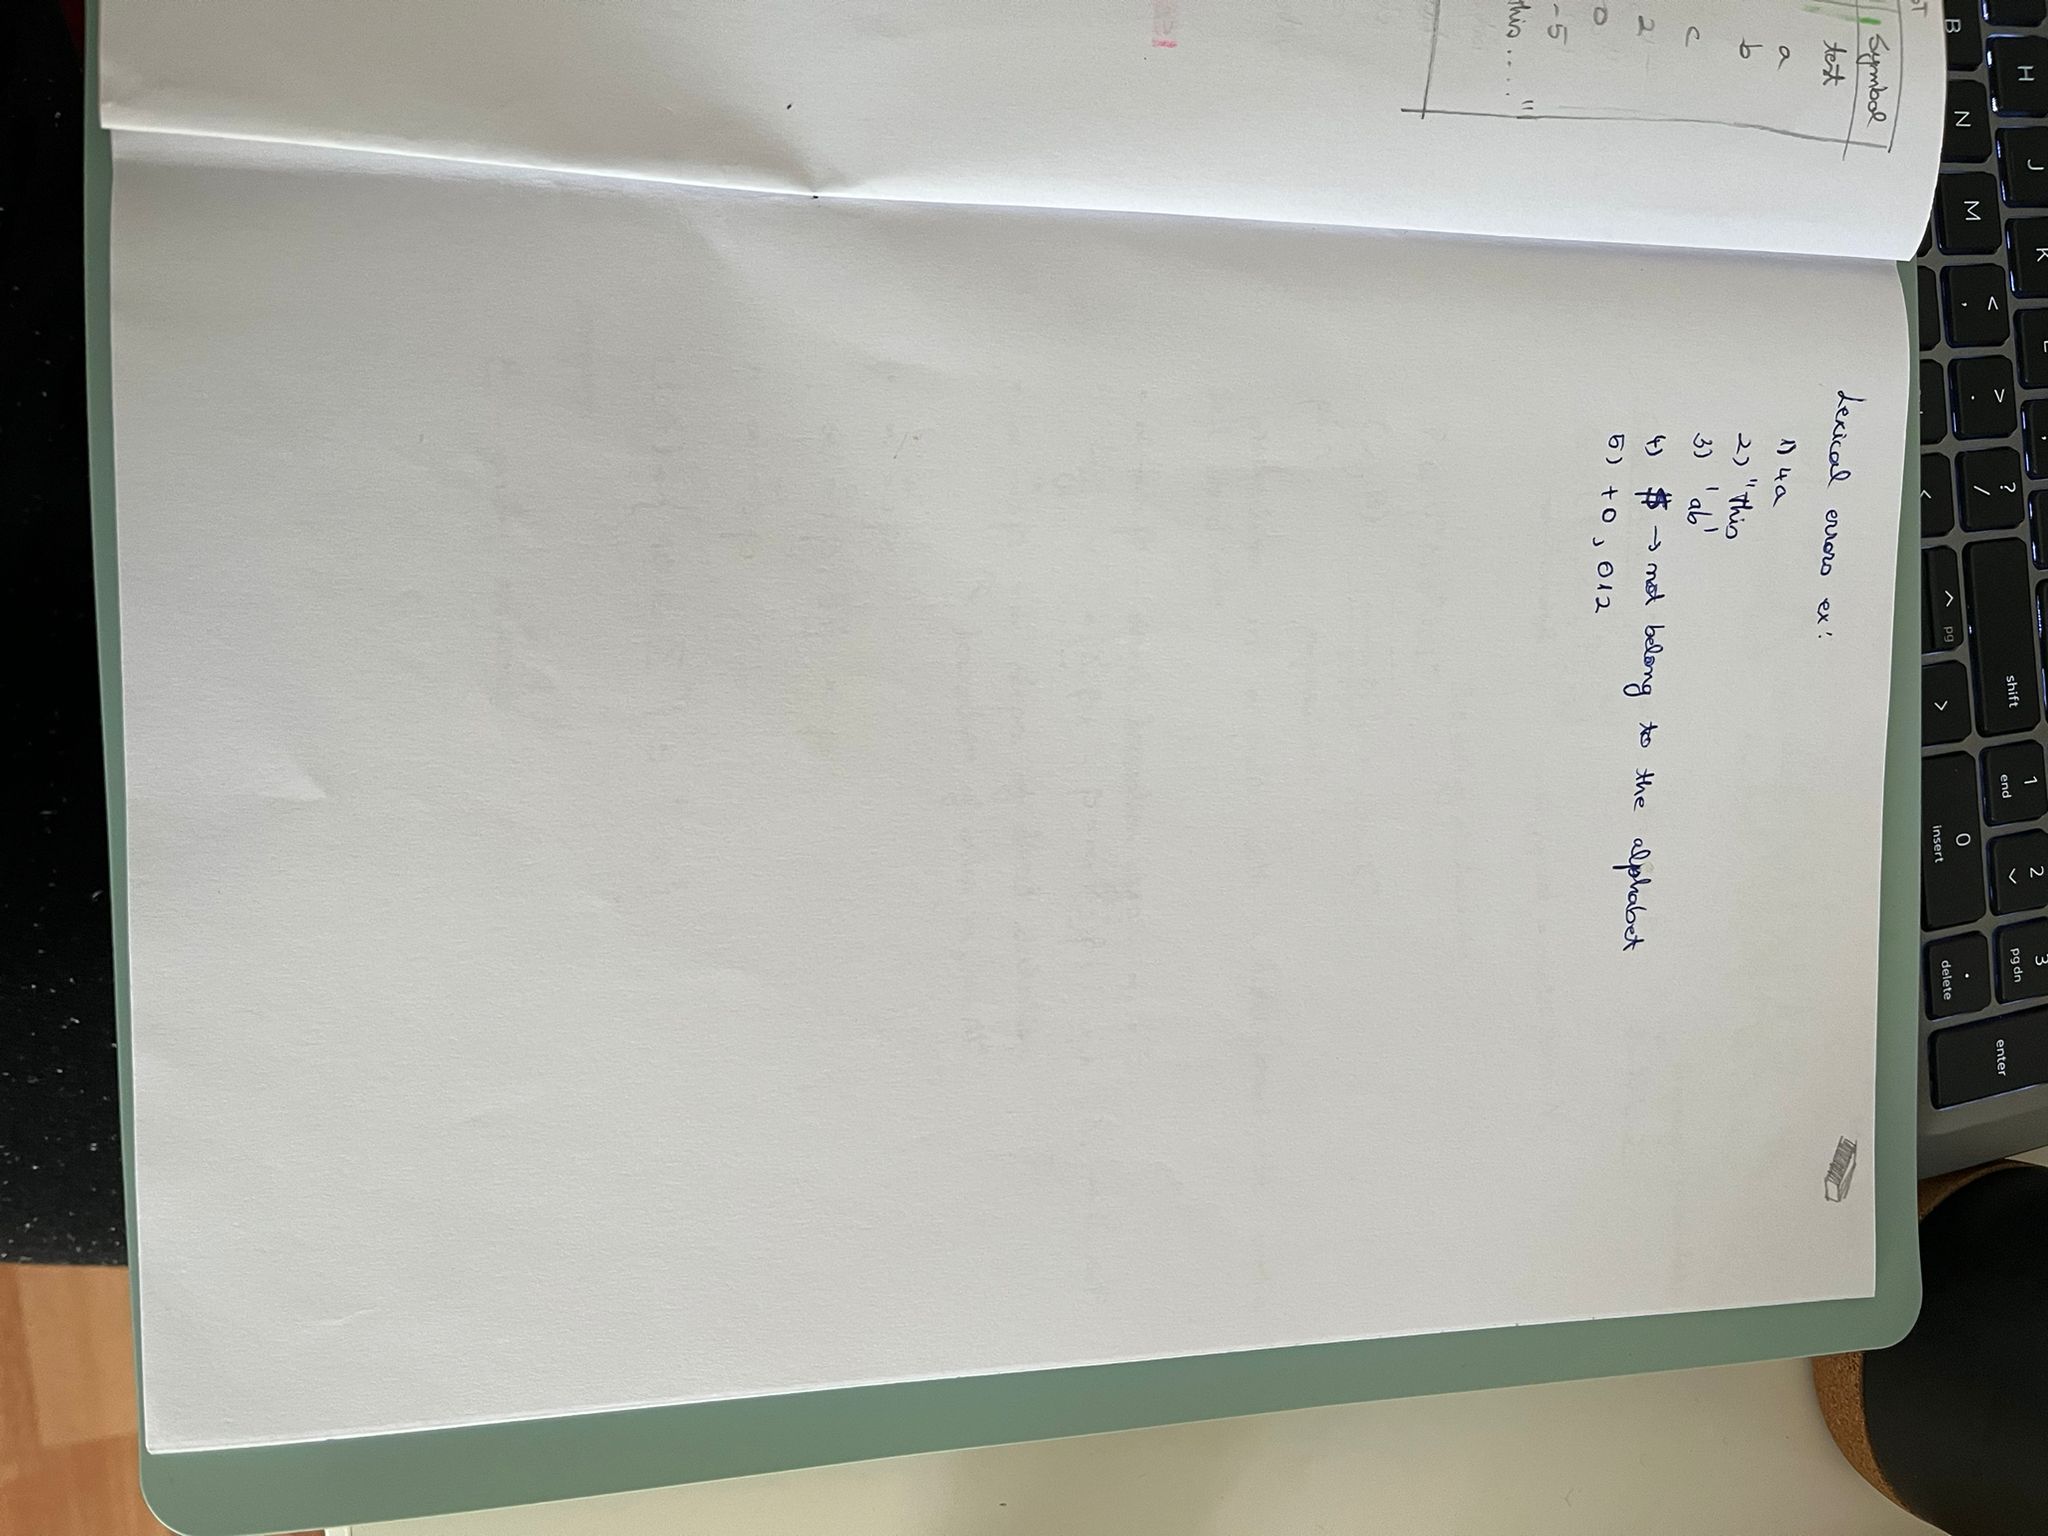 H
J
K
L
B
N
M
<
,
>
.
?
/
shift
1
end
2
3
pg dn
enter
^ pg
<
>
0
insert
.
delete
Symbol
test
a
b
c
2
0
-5
this ...."
Lexical errors ex:
1) 4a
2) "this
3) 'ab'
4) $ → not belong to the alphabet
5) +0, 012